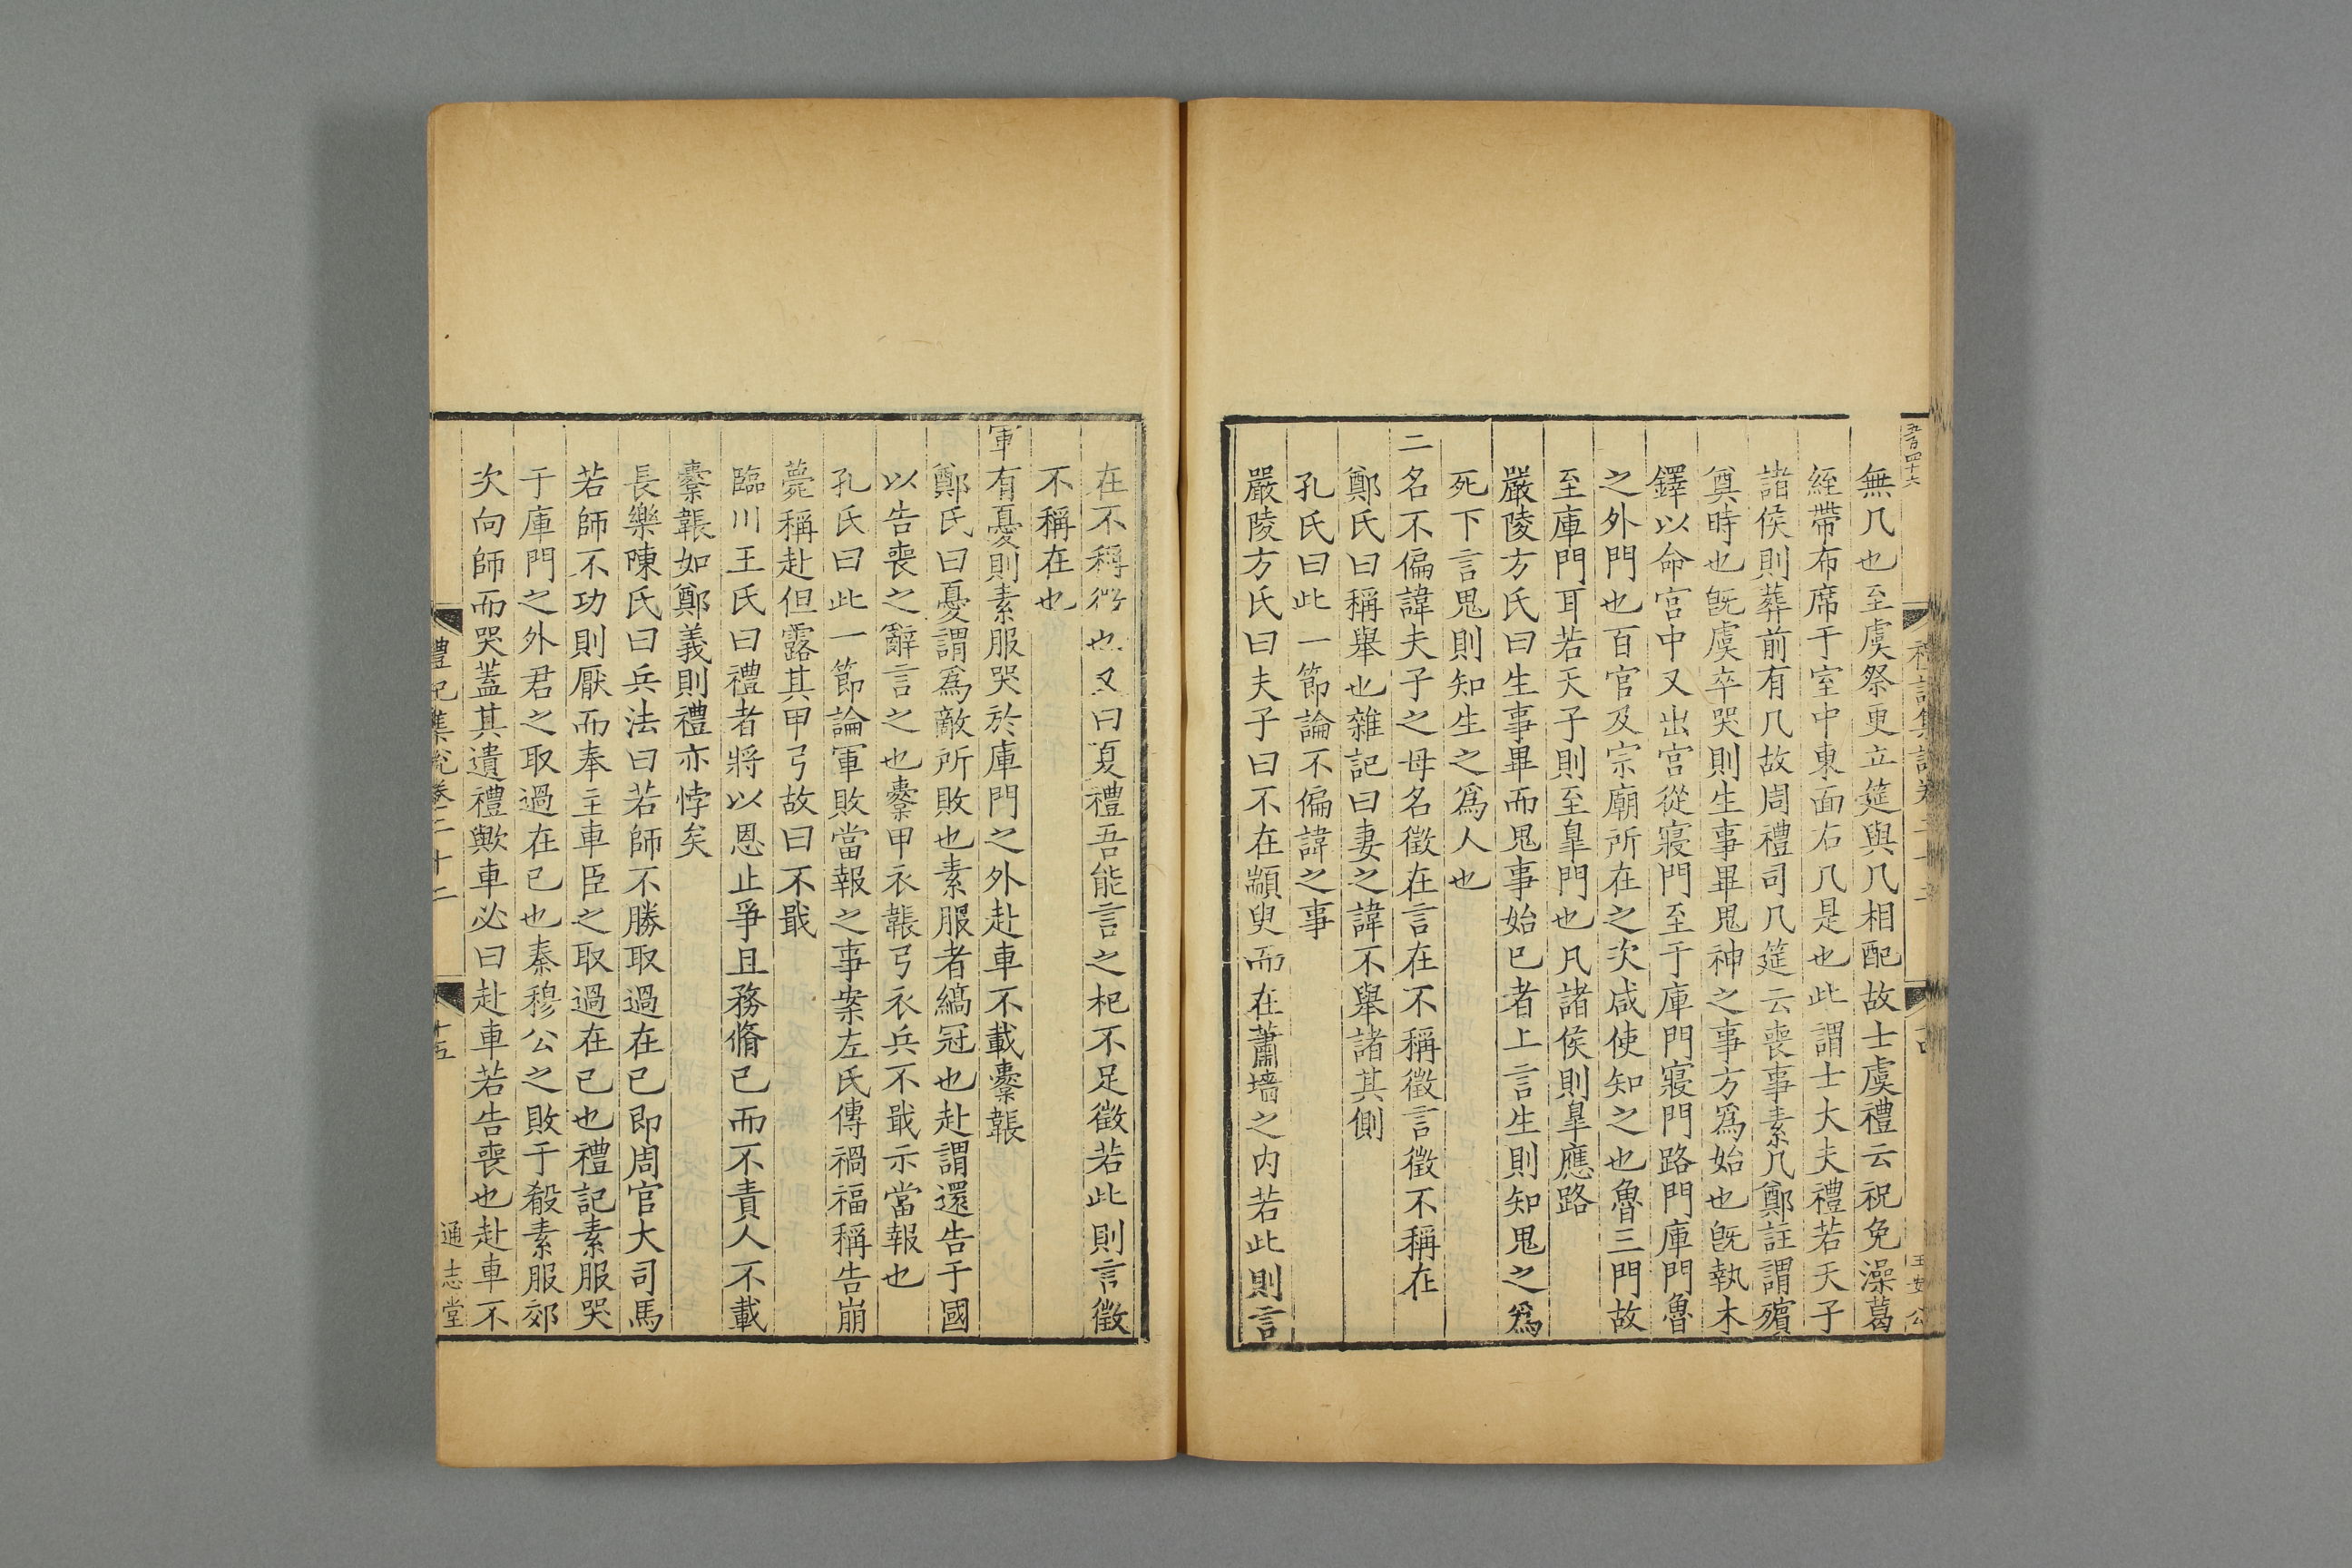 五百四十六
無几也至虞祭更立筵與几相配故士虞禮云祝免澡葛
絰帶布席于室中東面右几是也此謂士大夫禮若天子
諸侯則葬前有几故周禮司几筵云喪事素几鄭註謂殯
奠時也旣虞卒哭則生事畢鬼神之事方爲始也旣執木
鐸以命宮中又出宮從寢門至于庫門寢門路門庫門魯
之外門也百官及宗廟所在之次咸使知之也魯三門故
至庫門耳若天子則至臯門也凡諸侯則臯應路
嚴陵方氏曰生事畢而鬼事始已者上言生則知鬼之爲
死下言鬼則知生之爲人也
二名不偏諱夫子之母名徵在言在不稱徵言徵不稱在
鄭氏曰稱舉也雜記曰妻之諱不舉諸其側
孔氏曰此一節論不偏諱之事
嚴陵方氏曰夫子曰不在顓臾而在蕭墻之內若此則言
在不稱徵也又曰夏禮吾能言之杞不足徵若此則言徵
不稱在也
軍有憂則素服哭於庫門之外赴車不載櫜韔
鄭氏曰憂謂爲敵所敗也素服者縞冠也赴謂還告于國
以告喪之辭言之也櫜甲衣韔弓衣兵不戢示當報也
孔氏曰此一節論軍敗當報之事案左氏傳禍福稱告崩
薨稱赴但露其甲弓故曰不戢
臨川王氏曰禮者將以恩止爭且務脩己而不責人不載
櫜韔如鄭義則禮亦悖矣
長樂陳氏曰兵法曰若師不勝取過在己卽周官大司馬
若師不功則厭而奉主車臣之取過在己也禮記素服哭
于庫門之外君之取過在己也秦穆公之敗于殽素服郊
次向師而哭蓋其遺禮歟車必曰赴車若告喪也赴車不
禮記集說卷二十二
十五
通志堂